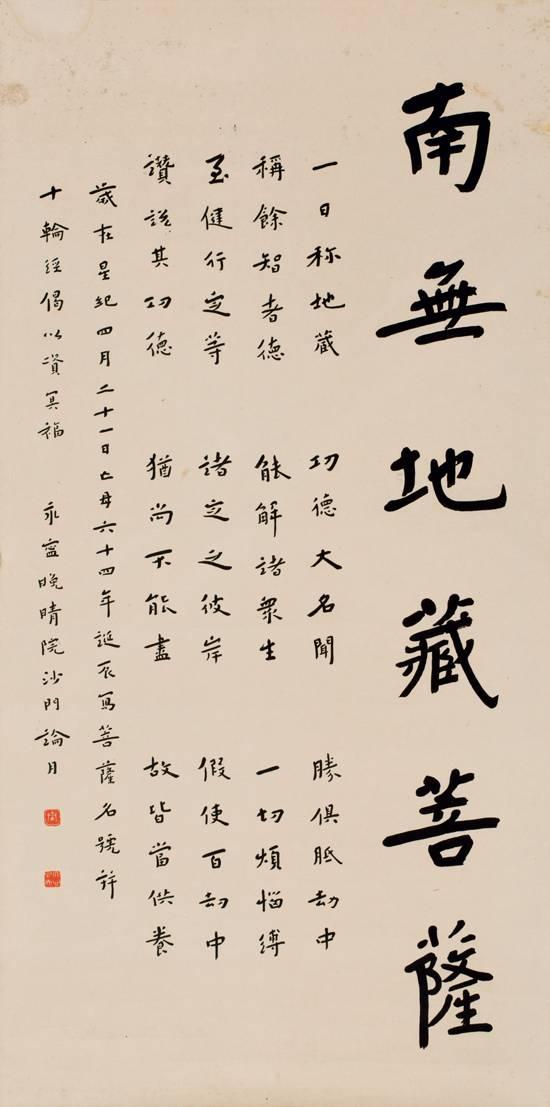 南無地藏菩薩
一日称地藏 功德大名聞 勝俱胝劫中
稱餘智者德 能解諸衆生 一切煩惱縛
至健行定等 諸定之彼岸 假使百劫中
讚説其功德 猶尚不能盡 故皆當供養
歲在星紀四月二十一日亡母六十四年誕辰寫菩薩名號并
十輪經偈以資冥福 永寧晚晴院沙門論月